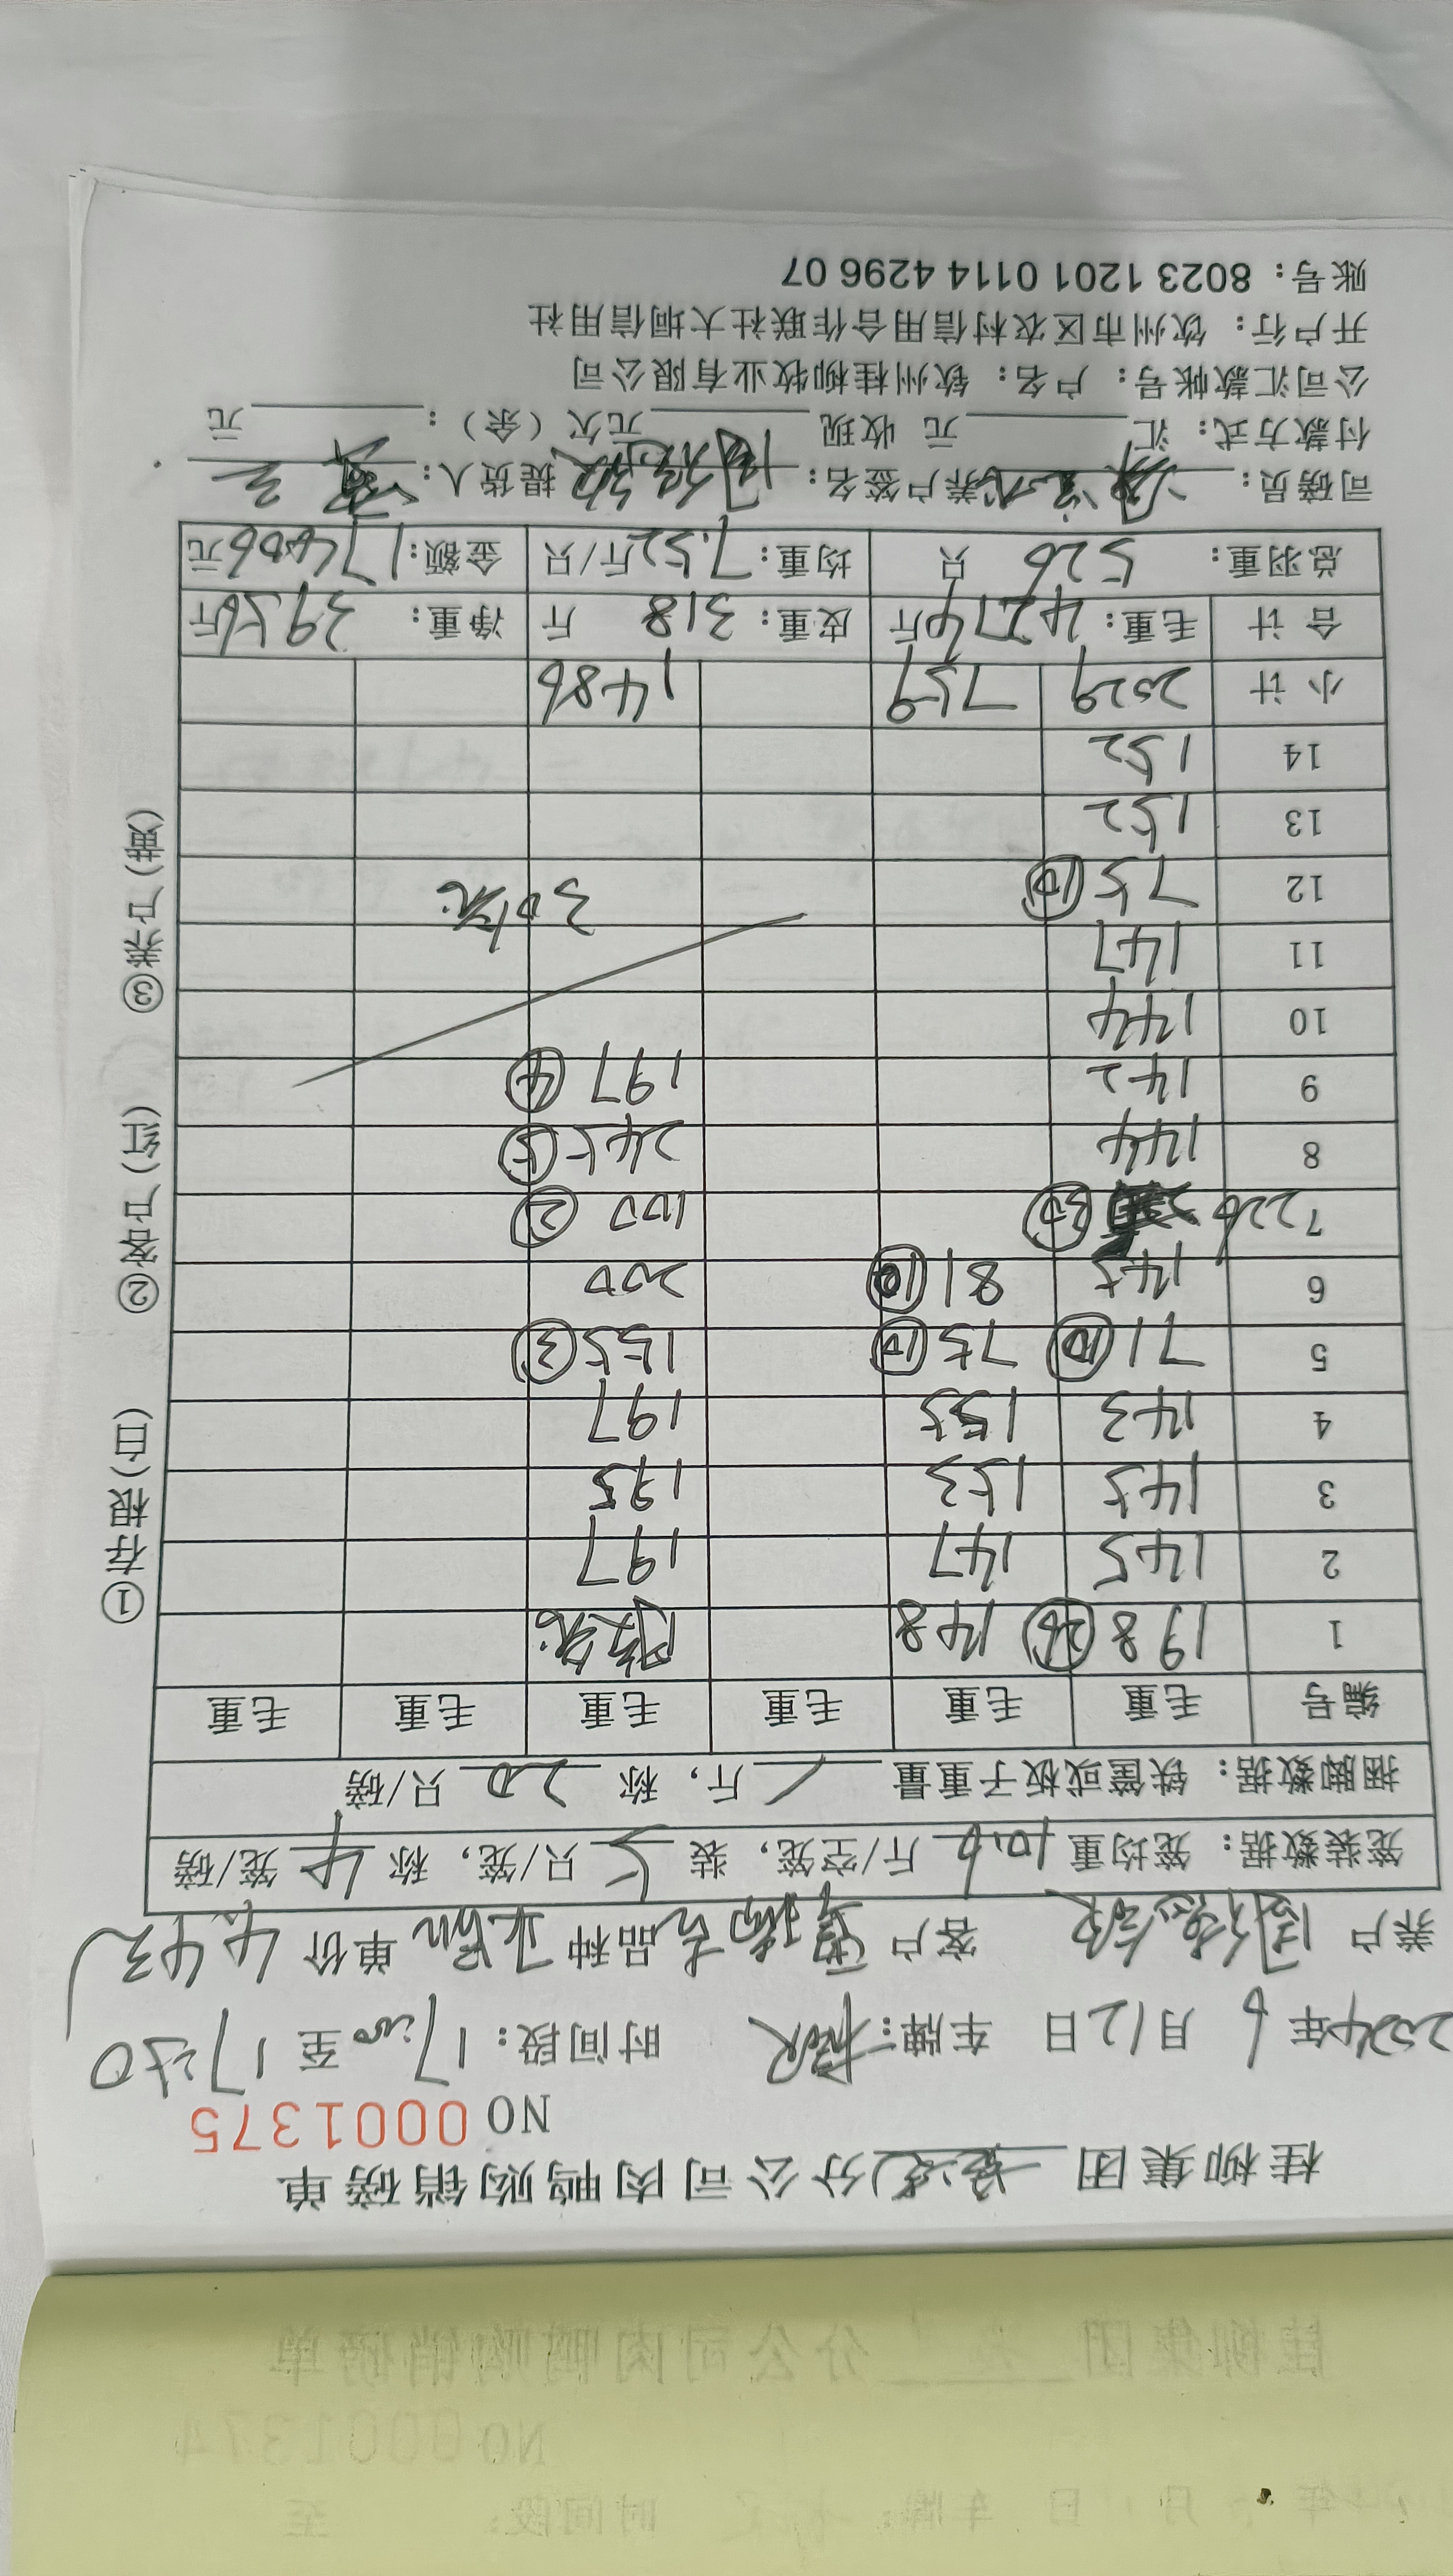 桂柳集团 分公司肉鸭购销磅单
NO 0001375
2024年 6 月 12 日 车牌: 时间段: 17:00 至 17:50
养户 周德 客户 品种 单价 4.45元
笼装数据: 笼均重 10.6 斤/空笼, 装 5 只/笼, 称 4 笼/磅
捆脚数据: 铁筐或板子重量 / 斤, 称 20 只/磅
编号 毛重 毛重 毛重 毛重 毛重 毛重
1 198 (26) 148
2 145 147 197
3 145 153 195
4 143 155 197
5 71 (10) 75 (10) 155 (3)
6 145 81 (10) 200
7 226 (30) 100 (2)
8 144 245 (5)
9 142 197 (4)
10 144
11 147
12 75 (10) 30笼
13 152
14 152
小计 2029 759 1486
合计 毛重: 4274 斤 皮重: 318 斤 净重: 3956 斤
总羽重: 526 只 均重: 7.52 斤/只 金额: 17606 元
司磅员: 养户签名: 周德 提货人:
付款方式: 汇 元 收现 元欠(余): 元
公司汇款帐号: 户名: 钦州桂柳牧业有限公司
开户行: 钦州市区农村信用合作联社大垌信用社
账号: 8023 1201 0114 4296 07
①存根(白) ②客户(红) ③养户(黄)
桂柳集团 分公司肉鸭购销磅单
NO 0001374
年 月 日 车牌: 时间段: 至